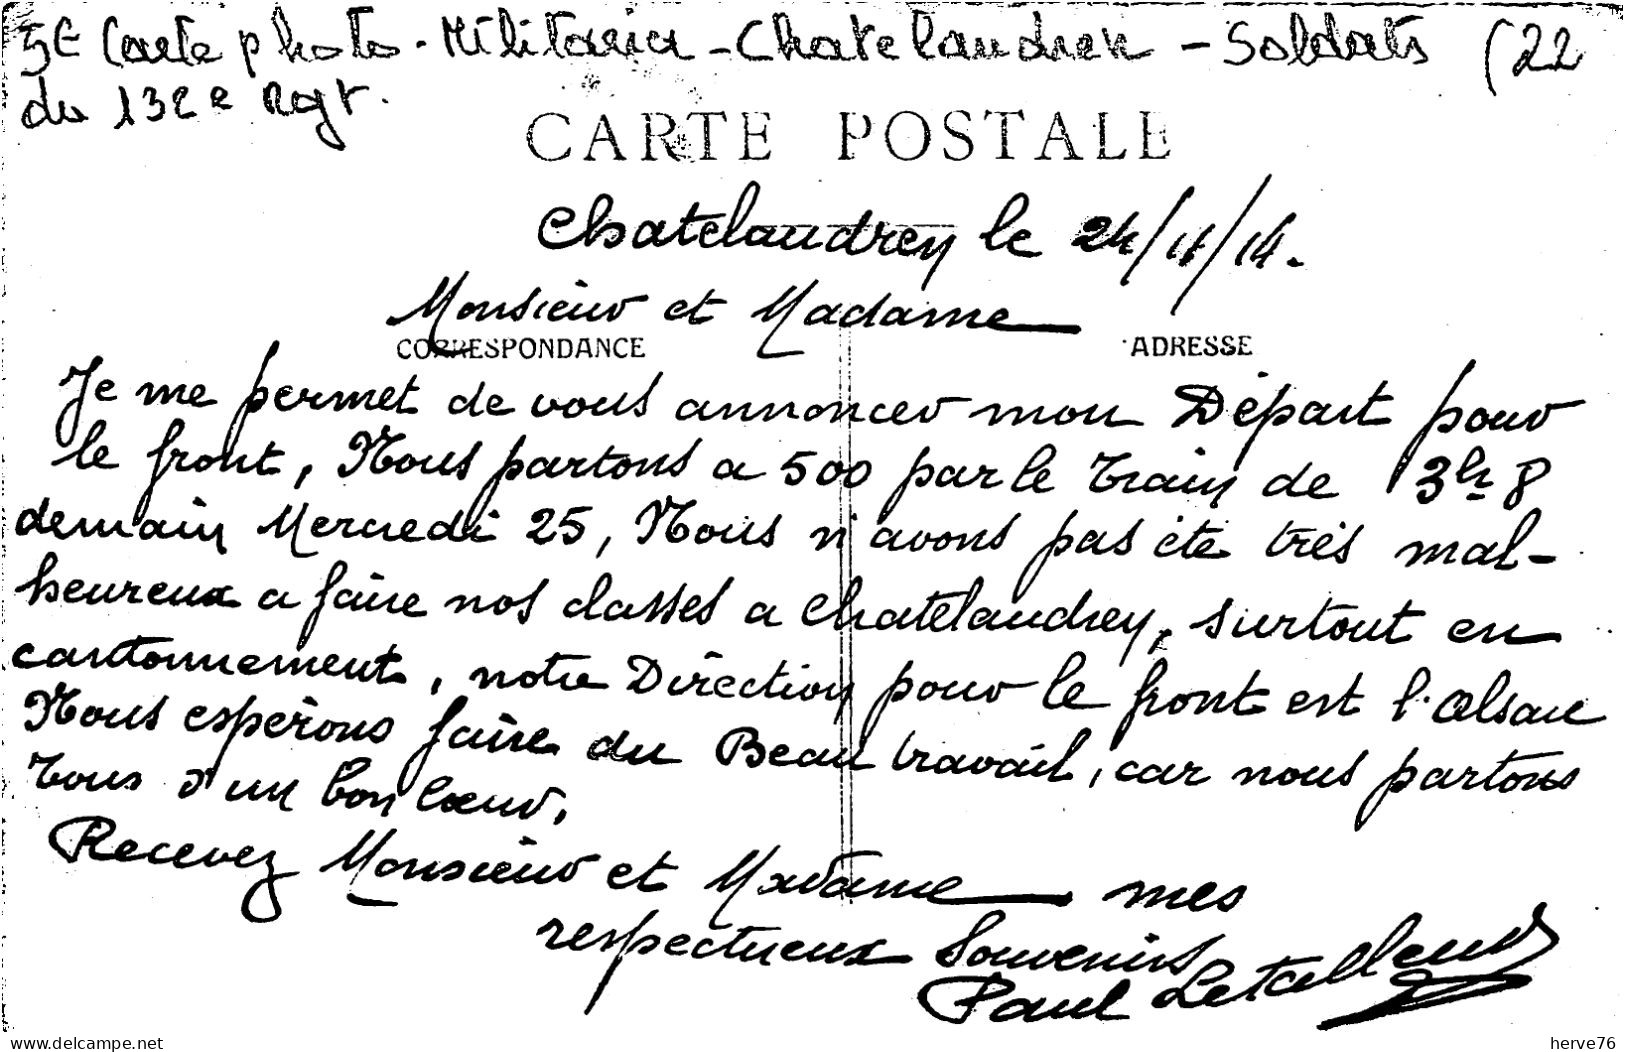 5€ Carte photo - Militaria - Chatelaudren - Soldats (22
du 132e Rgt.
CARTE POSTALE
Chatelaudren le 24/11/14.
Monsieur et Madame
CORRESPONDANCE ADRESSE
Je me permet de vous annoncer mon Départ pour
le front, Nous partons a 500 par le Train de 3h 8
demain Mercredi 25, Nous n'avons pas été très mal-
heureux a faire nos classes a Chatelaudren, surtout en
cantonnement, notre Direction pour le front est l'Alsace
Nous espérons faire du Beau travail, car nous partons
Tous d'un bon Cœur,
Recevez Monsieur et Madame mes
respectueux Souvenirs
Paul Letailleur
delcampe.net
herve76